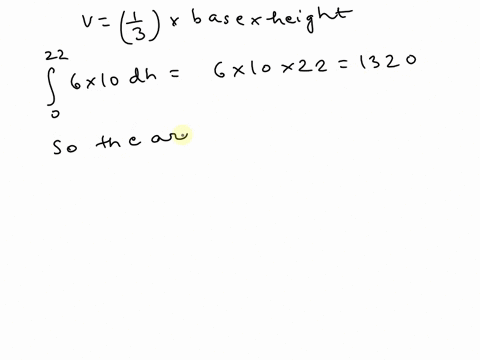 V = (1/3) × base × height
∫₀²² 6×10 dh = 6×10×22 = 1320
So the ar